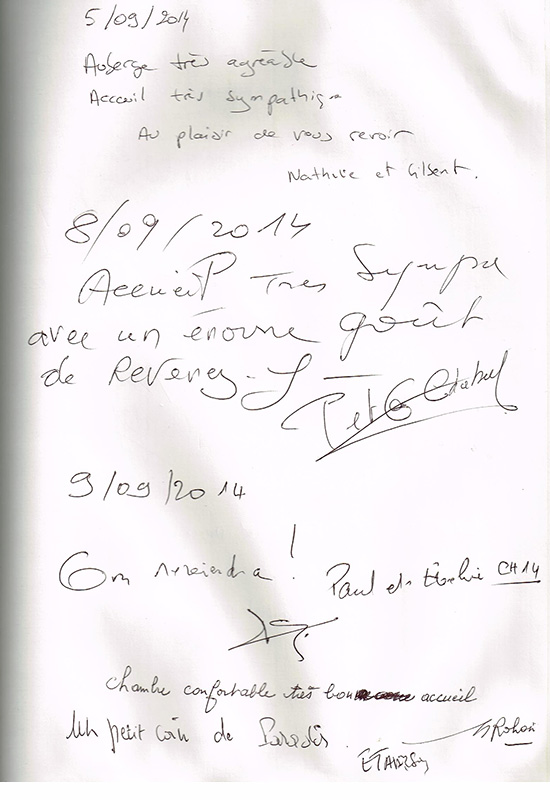 5/09/2014
Auberge très agréable
Accueil très sympathique
Au plaisir de vous revoir
Nathalie et Gilbert.
8/09/2014
Accueil Tres Sympa
avec un énorme goût
de Revenez-y
9/09/2014
On reviendra !
Paul et CH14
Chambre confortable très bon accueil
Un petit coin de Paradis.